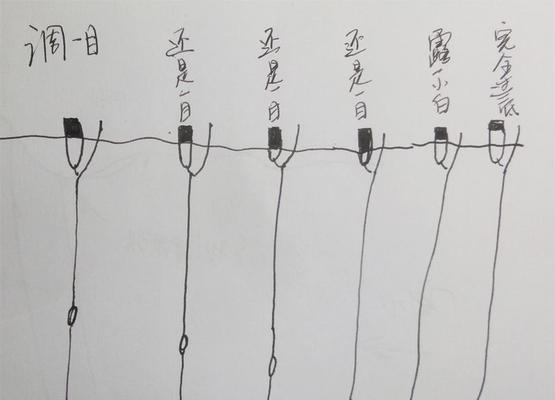 调一目
还是一目
还是一目
还是一目
露小白
完全到底